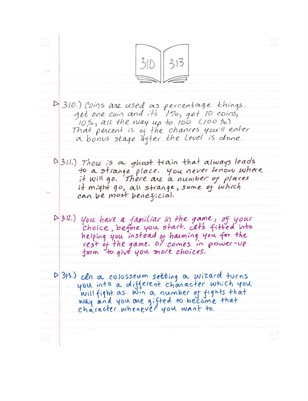 310 313
▷ 310.) Coins are used as percentage things.
get one coin and its 1%, get 10 coins,
10%, all the way up to 100 (100%)
That percent is of the chances you'll enter
a bonus stage after the level is done.
▷ 311.) There is a ghost train that always leads
to a strange place. You never know where
it will go. There are a number of places
it might go, all strange, some of which
can be most beneficial.
▷ 312.) You have a familiar in the game, of your
choice, before you start. Let's fitted into
helping you instead of harming you for the
rest of the game. Or comes in power-up
from to give you more choices.
▷ 313.) In a colosseum setting a wizard turns
you into a different character which you
will fight as. Win a number of fights that
way and you are gifted to become that
character whenever you want to.